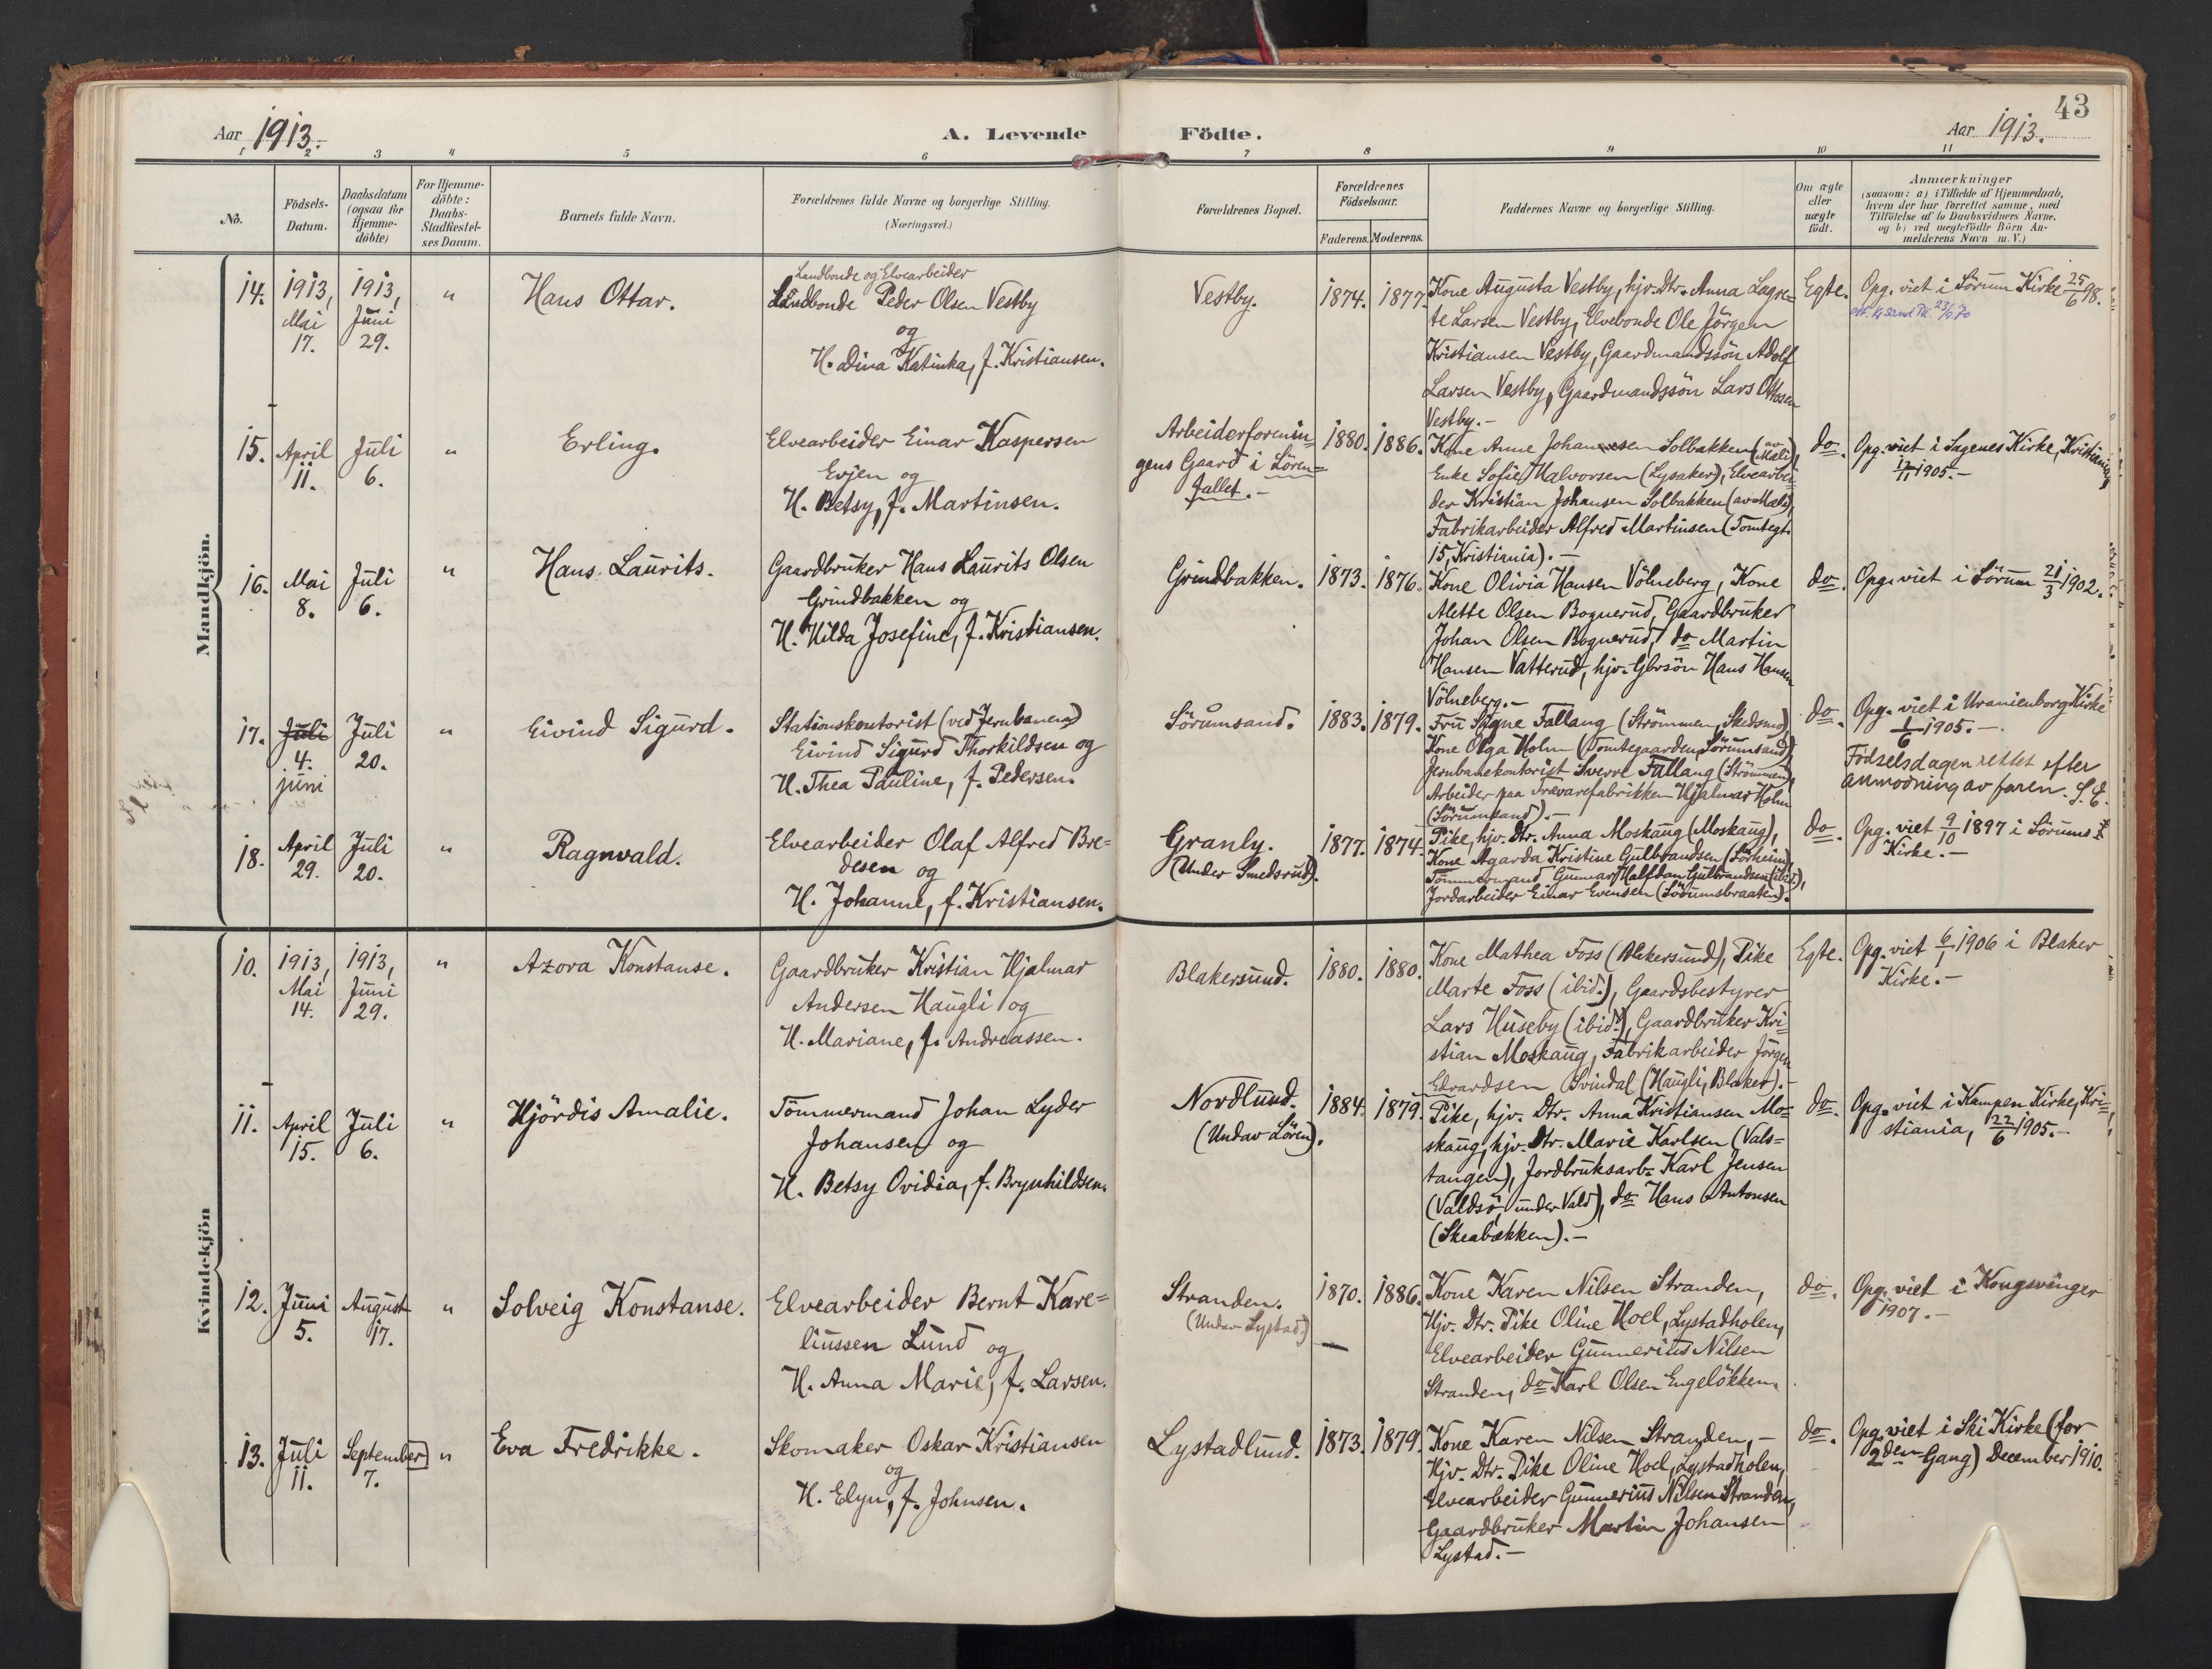 43
Aar 1913.
A. Levende Födte.
Aar 1913.
1 2 3 4 5 6 7 8 9 10 11
No.
Födsels-
Datum.
Daabsdatum
(ogsaa for
Hjemme-
döbte)
For Hjemme-
döbte:
Daabs-
Stadfæstel-
ses Datum.
Barnets fulde Navn.
Forældrenes fulde Navne og borgerlige Stilling.
(Næringsvei.)
Forældrenes Bopæl.
Forældrenes
Födselsaar.
Faderens. Moderens.
Faddernes Navne og borgerlige Stilling.
Om ægte
eller
uægte
födt.
Anmærkninger
(saasom: a) i Tilfælde af Hjemmedaab,
hvem der har forrettet samme, med
Tilföielse af to Daabsvidners Navne.
og b) ved uægtefödte Börn An-
melderens Navn m. V.)
Mandkjön.
14.
1913,
Mai
17.
1913,
Juni
29.
"
Hans Ottar.
Landbonde og Elvearbeider
Landbonde Peder Olsen Vestby
og
H. Dina Katinka, f. Kristiansen.
Vestby.
1874.
1877.
Kone Augusta Vestby, hjv. Dtr. Anna Lagre-
te Larsen Vestby, Elvebonde Ole Jörgen
Kristiansen Vestby, Gaardmandssön Adolf
Larsen Vestby, Gaardmandssön Lars Ottosen
Vestby.-
Egte.
Opg. viet i Sörum Kirke 25/6 98.
15.
April
11.
Juli
6.
"
Erling.
Elvearbeider Einar Kaspersen
Evjen og
H. Betsy, f. Martinsen.
Arbeiderforenin-
gens Gaard i Sören-
fallet.-
1880.
1886.
Kone Anne Johannesen Solbakken (av Mæli),
Enke Sofie Halvorsen (Lysaker), Elvearbei-
der Kristian Johansen Solbakken (av Mæli),
Fabrikarbeider Alfred Martinsen (Tomtegt.
15, Kristiania).-
do.
Opg. viet i Sagenes Kirke, Kristiania,
1905.-
16.
Mai
8.
Juli
6.
"
Hans Laurits.
Gaardbruker Hans Laurits Olsen
Grindbakken og
H. Hilda Josefine, f. Kristiansen.
Grindbakken.
1873.
1876.
Kone Olivia Hansen Völneberg, Kone
Alette Olsen Bognerud, Gaardbruker
Johan Olsen Bognerud, do Martin
Hansen Vatterud, hjv. Gbrsön Hans Hansen
Völneberg.-
do.
Opg. viet i Sörum 21/3 1902.
17.
Juli
4.
juni
Juli
20.
"
Eivind Sigurd.
Stationskontorist (ved Jernbanen)
Eivind Sigurd Thorkildsen og
H. Thea Pauline, f. Pedersen.
Sörumsand.
1883.
1879.
Fru Signe Fallang (Strömmen, Skedsmo),
Kone Olga Holm (Tomtegaarden, Sörumsand),
Jernbanekontorist Sverre Fallang (Strömmen),
Arbeider paa Trævarefabrikken Hjalmar Holm
(Sörumsand).-
do.
Opg. viet i Uranienborg Kirke
1/6 1905.-
Födselsdagen rettet efter
anmodning av faren. S. E.
18.
April
29.
Juli
20.
"
Ragnvald.
Elvearbeider Olaf Alfred Bre-
desen og
H. Johanne, f. Kristiansen.
Granly.
(Under Smedsrud).
1877.
1874.
Pike, hjv. Dtr. Anna Moskaug (Moskaug),
Kone Agarda Kristine Gulbrandsen (Sörheim),
Tömmermand Gunnar Halfdan Gulbrandsen (ibid),
Jordarbeider Einar Evensen (Sörumsbraaten).
do.
Opg. viet 9/10 1897 i Sörums
Kirke.-
Kvindekjön
10.
1913,
Mai
14.
1913,
Juni
29.
"
Azora Konstanse.
Gaardbruker Kristian Hjalmar
Andersen Haugli og
H. Mariane, f. Andreassen.
Blakersund.
1880.
1880.
Kone Mathea Foss (Blakersund), Pike
Marte Foss (ibid.), Gaardsbestyrer
Lars Huseby (ibid.), Gaardbruker Kri-
stian Moskaug, Fabrikarbeider Jörgen
Edvardsen Svindal (Haugli, Blaker).-
Egte.
Opg. viet 6/1 1906 i Blaker
Kirke.-
11.
April
15.
Juli
6.
"
Hjördis Amalie.
Tömmermand Johan Lyder
Johansen og
H. Betsy Ovidia, f. Brynhildsen.
Nordlund.
(Under Lören).
1884.
1879.
Pike, hjv. Dtr. Anna Kristiansen Mo-
skaug, hjv. Dtr. Marie Karlsen (Vals-
tangen), Jordbruksarb. Karl Jensen
(Valdsö, under Vald), do Hans Antonsen
(Skeabækken).-
do.
Opg. viet i Kampen Kirke, Kri-
stiania, 22/6 1905.-
12.
Juni
5.
August
17.
"
Solveig Konstanse.
Elvearbeider Bernt Kare-
liussen Lund og
H. Anna Marie, f. Larsen.
Stranden.
(Under Lystad.)
1870.
1886.
Kone Karen Nilsen Stranden,
Hjv. Dtr. Pike Oline Hoel, Lystadholen,
Elvearbeider Gunnerius Nilsen
Stranden, do Karl Olsen Engelökken.
do.
Opg. viet i Kongsvinger
1907.-
13.
Juli
11.
September
7.
"
Eva Fredrikke.
Skomaker Oskar Kristiansen
og
H. Elyn, f. Johnsen.
Lystadlund.
1873.
1879.
Kone Karen Nilsen Stranden,-
Hjv. Dtr. Pike Oline Hoel, Lystadholen,
Elvearbeider Gunnerius Nilsen Stranden,
Gaardbruker Martin Johansen
Lystad.-
do.
Opg. viet i Ski Kirke (for
2den Gang) December 1910.